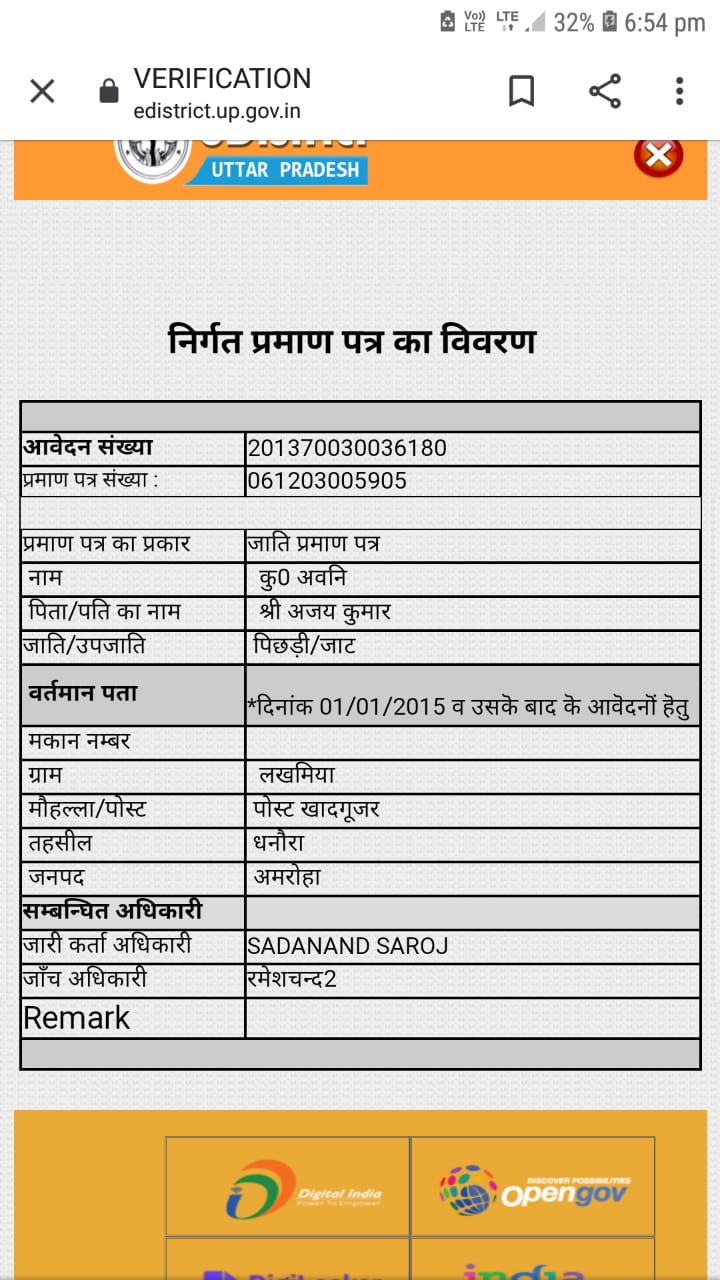 Vo)) LTE LTE 32% 6:54 pm
VERIFICATION
edistrict.up.gov.in
UTTAR PRADESH
निर्गत प्रमाण पत्र का विवरण
आवेदन संख्या 201370030036180
प्रमाण पत्र संख्या : 061203005905
प्रमाण पत्र का प्रकार जाति प्रमाण पत्र
नाम कु0 अवनि
पिता/पति का नाम श्री अजय कुमार
जाति/उपजाति पिछड़ी/जाट
वर्तमान पता *दिनांक 01/01/2015 व उसकॆ बाद कॆ आवॆदनॊं हॆतु
मकान नम्बर
ग्राम लखमिया
मौहल्ला/पोस्ट पोस्ट खादगूजर
तहसील धनौरा
जनपद अमरोहा
सम्बन्धित अधिकारी
जारी कर्ता अधिकारी SADANAND SAROJ
जाँच अधिकारी रमेशचन्द2
Remark
Digital India
Power To Empower
DISCOVER POSSIBILITIES
opengov